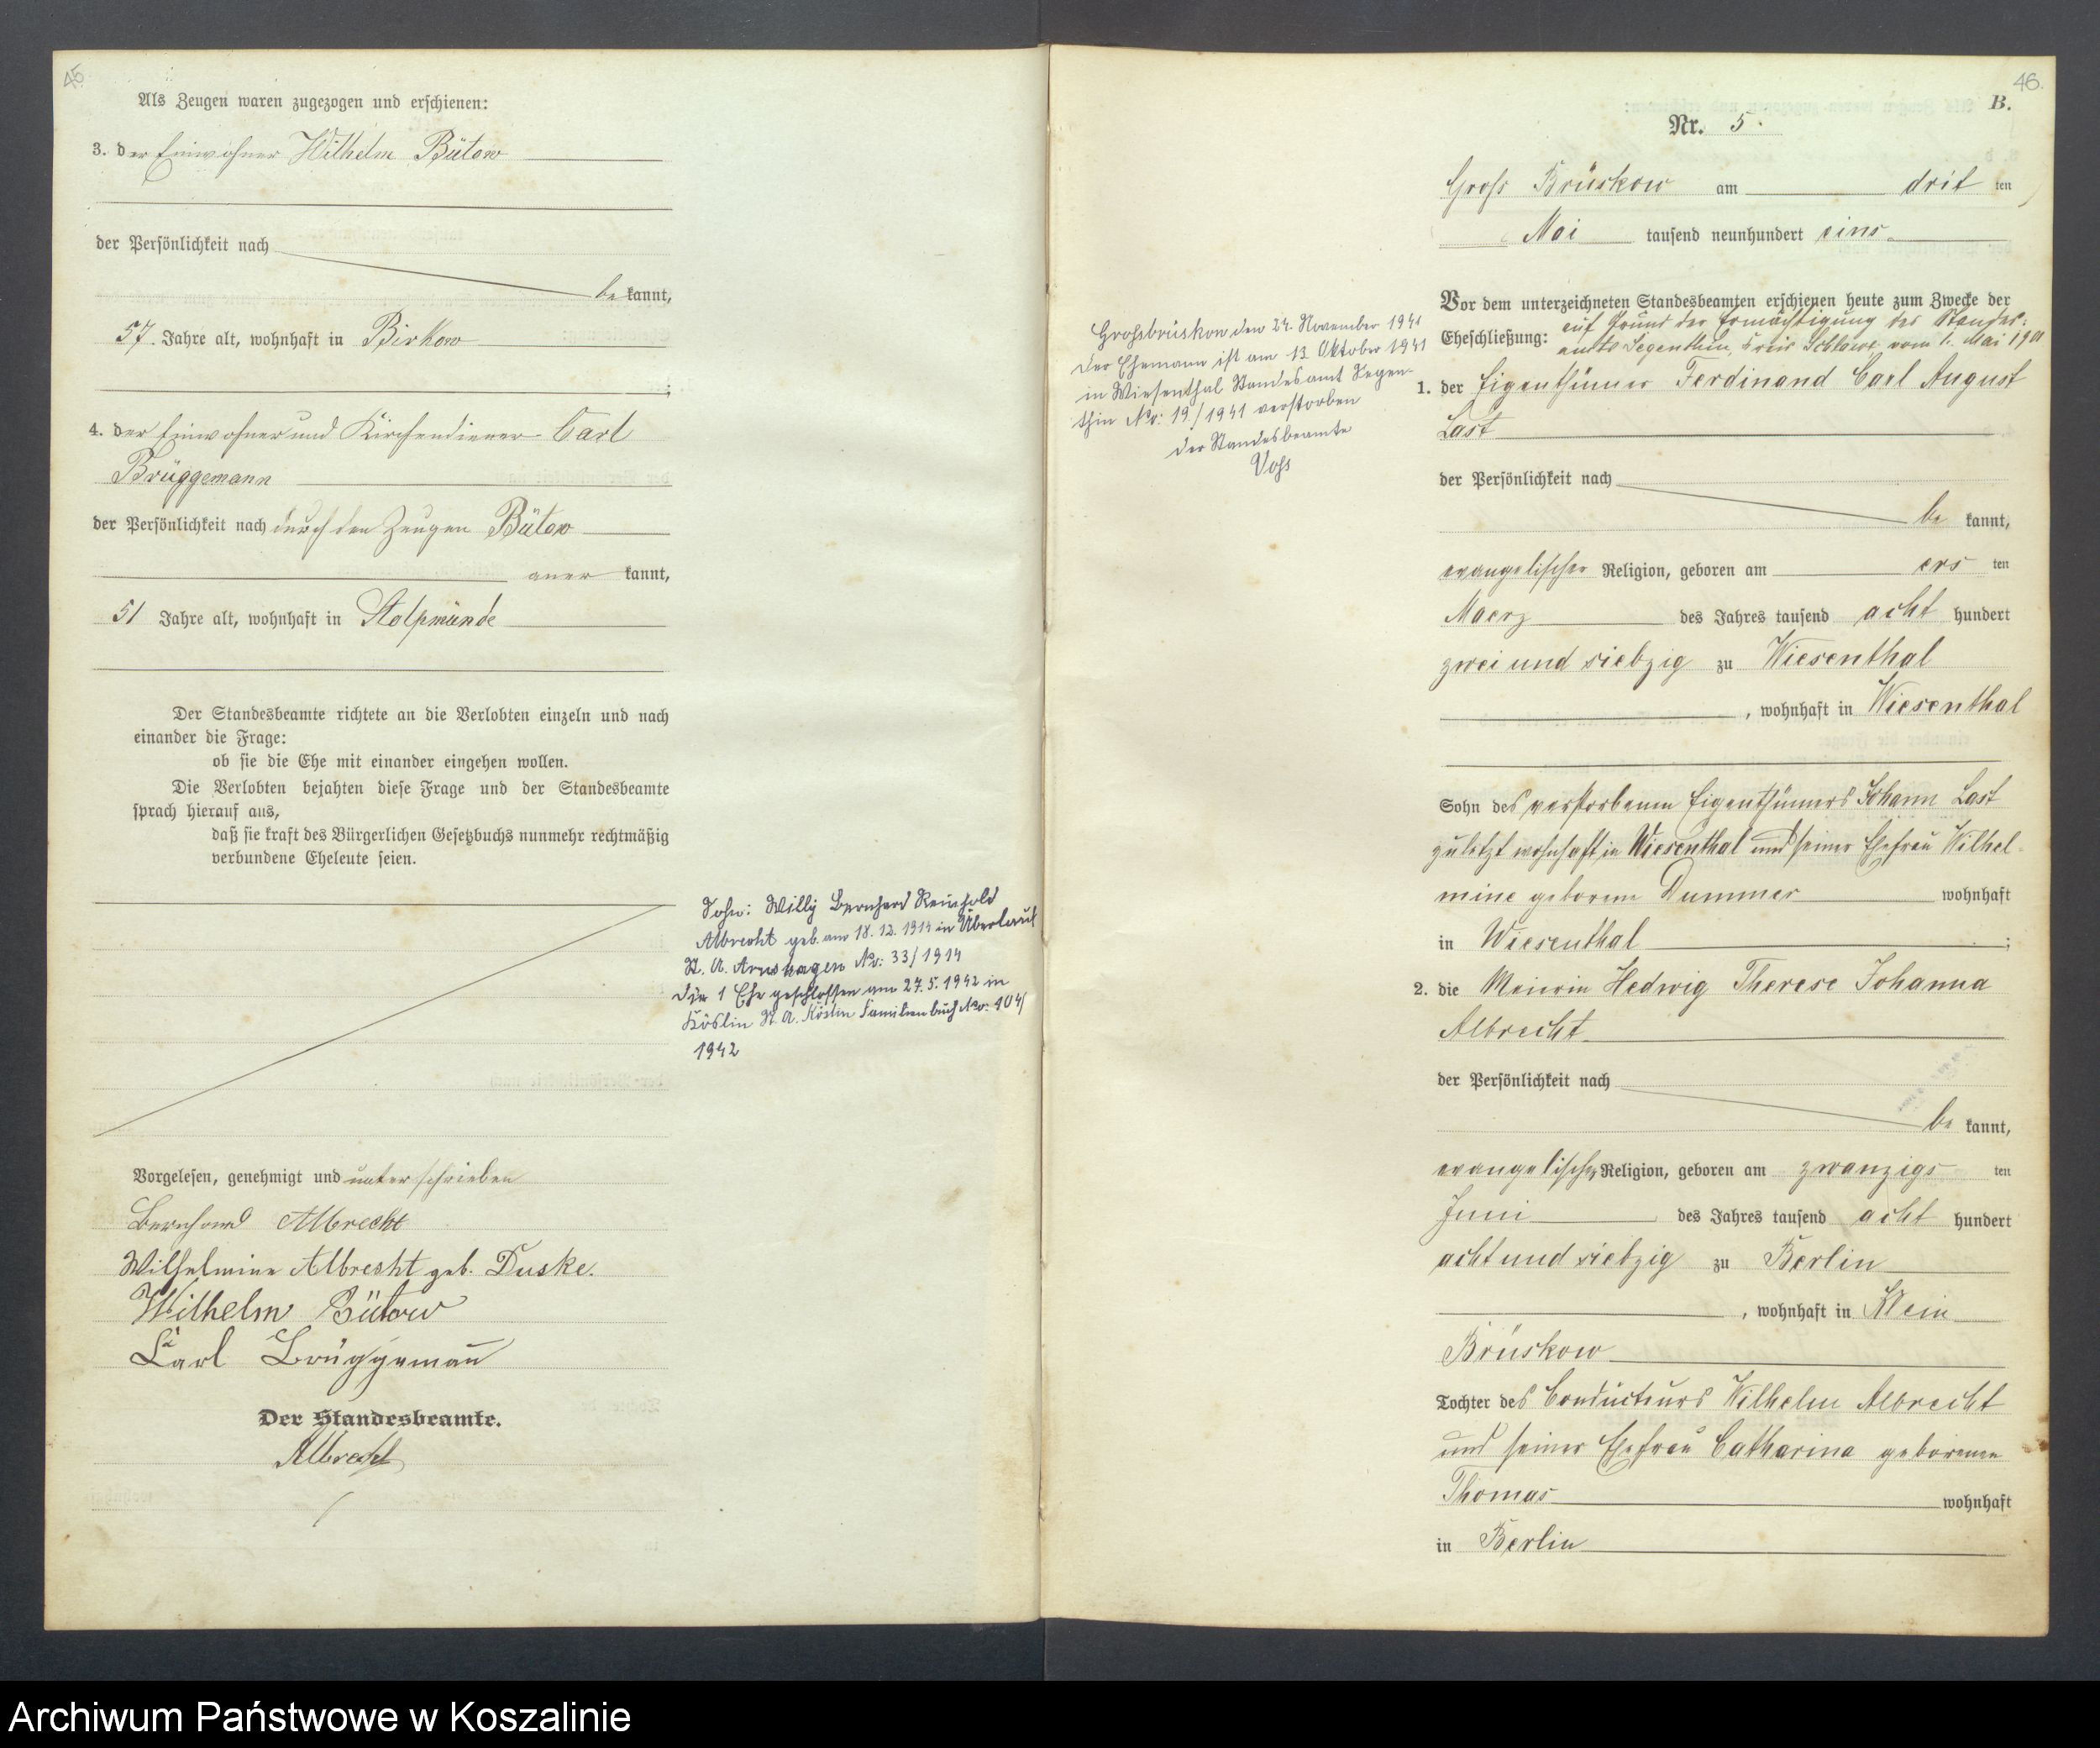 45.
Als Zeugen waren zugezogen und erschienen:
3. der Einwohner Wilhelm Bütow
der Persönlichkeit nach
bekannt,
57 Jahre alt, wohnhaft in Birkow
;
4. der Einwohner und Kirchendiener Carl
Brüggemann
der Persönlichkeit nach durch den Zeugen Bütow
anerkannt,
51 Jahre alt, wohnhaft in Stolpmünde
Der Standesbeamte richtete an die Verlobten einzeln und nach
einander die Frage:
ob sie die Ehe mit einander eingehen wollen.
Die Verlobten bejahten diese Frage und der Standesbeamte
sprach hierauf aus,
daß sie kraft des Bürgerlichen Gesetzbuchs nunmehr rechtmäßig
verbundene Eheleute seien.
Sohn: Willy Bernhard Reinhold
Albrecht geb. am 18.12.1914 in Überlauf
St. A. Arnshagen Nr: 33/1914
Die 1 Ehe geschlossen am 27.5.1942 in
Köslin St. A. Köslin Familienbuch Nr: 104/
1942
Vorgelesen, genehmigt und unterschrieben
Bernhard Albrecht
Wilhelmine Albrecht geb. Duske.
Wilhelm Bütow
Carl Brüggemann
Der Standesbeamte.
Albrecht
46.
B.
Nr. 5.
Gross Brüskow am dritten
Mai tausend neunhundert eins
Vor dem unterzeichneten Standesbeamten erschienen heute zum Zwecke der
Eheschließung: auf Grund der Ermächtigung des Standes-
amts Segenthin, Kreis Schlawe, vom 1. Mai 1901
1. der Eigenthümer Ferdinand Carl August
Last
der Persönlichkeit nach
bekannt,
evangelischer Religion, geboren am ersten
Maerz des Jahres tausend acht hundert
zwei und siebzig zu Wiesenthal
, wohnhaft in Wiesenthal
Sohn des verstorbenen Eigenthümers Johann Last
zuletzt wohnhaft in Wiesenthal und seiner Ehefrau Wilhel-
mine geborene Dummer wohnhaft
in Wiesenthal ;
2. die Meierin Hedwig Therese Johanna
Albrecht
der Persönlichkeit nach
bekannt,
evangelischer Religion, geboren am zwanzigsten
Juni des Jahres tausend acht hundert
acht und siebzig zu Berlin
, wohnhaft in Klein
Brüskow
Tochter des Conducteurs Wilhelm Albrecht
und seiner Ehefrau Catharina geborenen
Thomas wohnhaft
in Berlin
Grossbrüskow den 24. November 1941
Der Ehemann ist am 13. Oktober 1941
in Wiesenthal Standesamt Segen-
thin Nr: 19/1941 verstorben
Der Standesbeamte
Voss
Archiwum Państwowe w Koszalinie